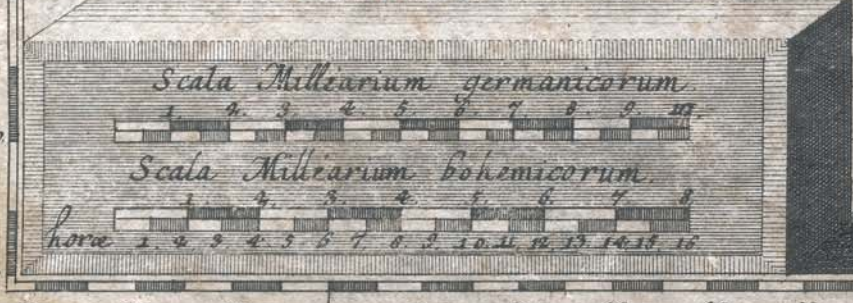 Scala Milliarium germanicorum.
1. 2. 3. 4. 5. 6. 7. 8. 9. 10.
Scala Milliarium bohemicorum.
1. 2. 3. 4. 5. 6. 7. 8.
horæ 1. 2. 3. 4. 5. 6. 7. 8. 9. 10. 11. 12. 13. 14. 15. 16.